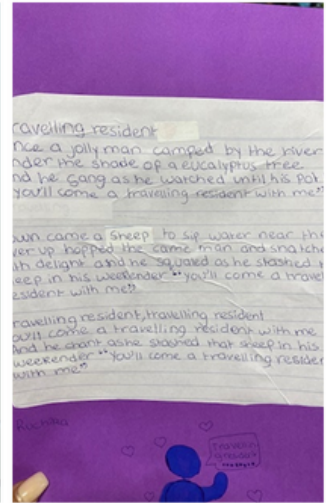 ravelling resident
nce a jolly man camped by the river
nder the shade of a eucalyptus tree
nd he Gang as he watched until his Pot
you'll come a travelling resident with me"
own came a Sheep to sip water near the
ver up hopped the came man and snatche
ith delight and he squared as he stashed t
eep in his weekender "you'll come a travel
esident with me"
ravelling resident, travelling resident
ou'll come a travelling resident with me
And he chant as he stashed that sheep in his
weekender "you'll come a travelling residen
with me"